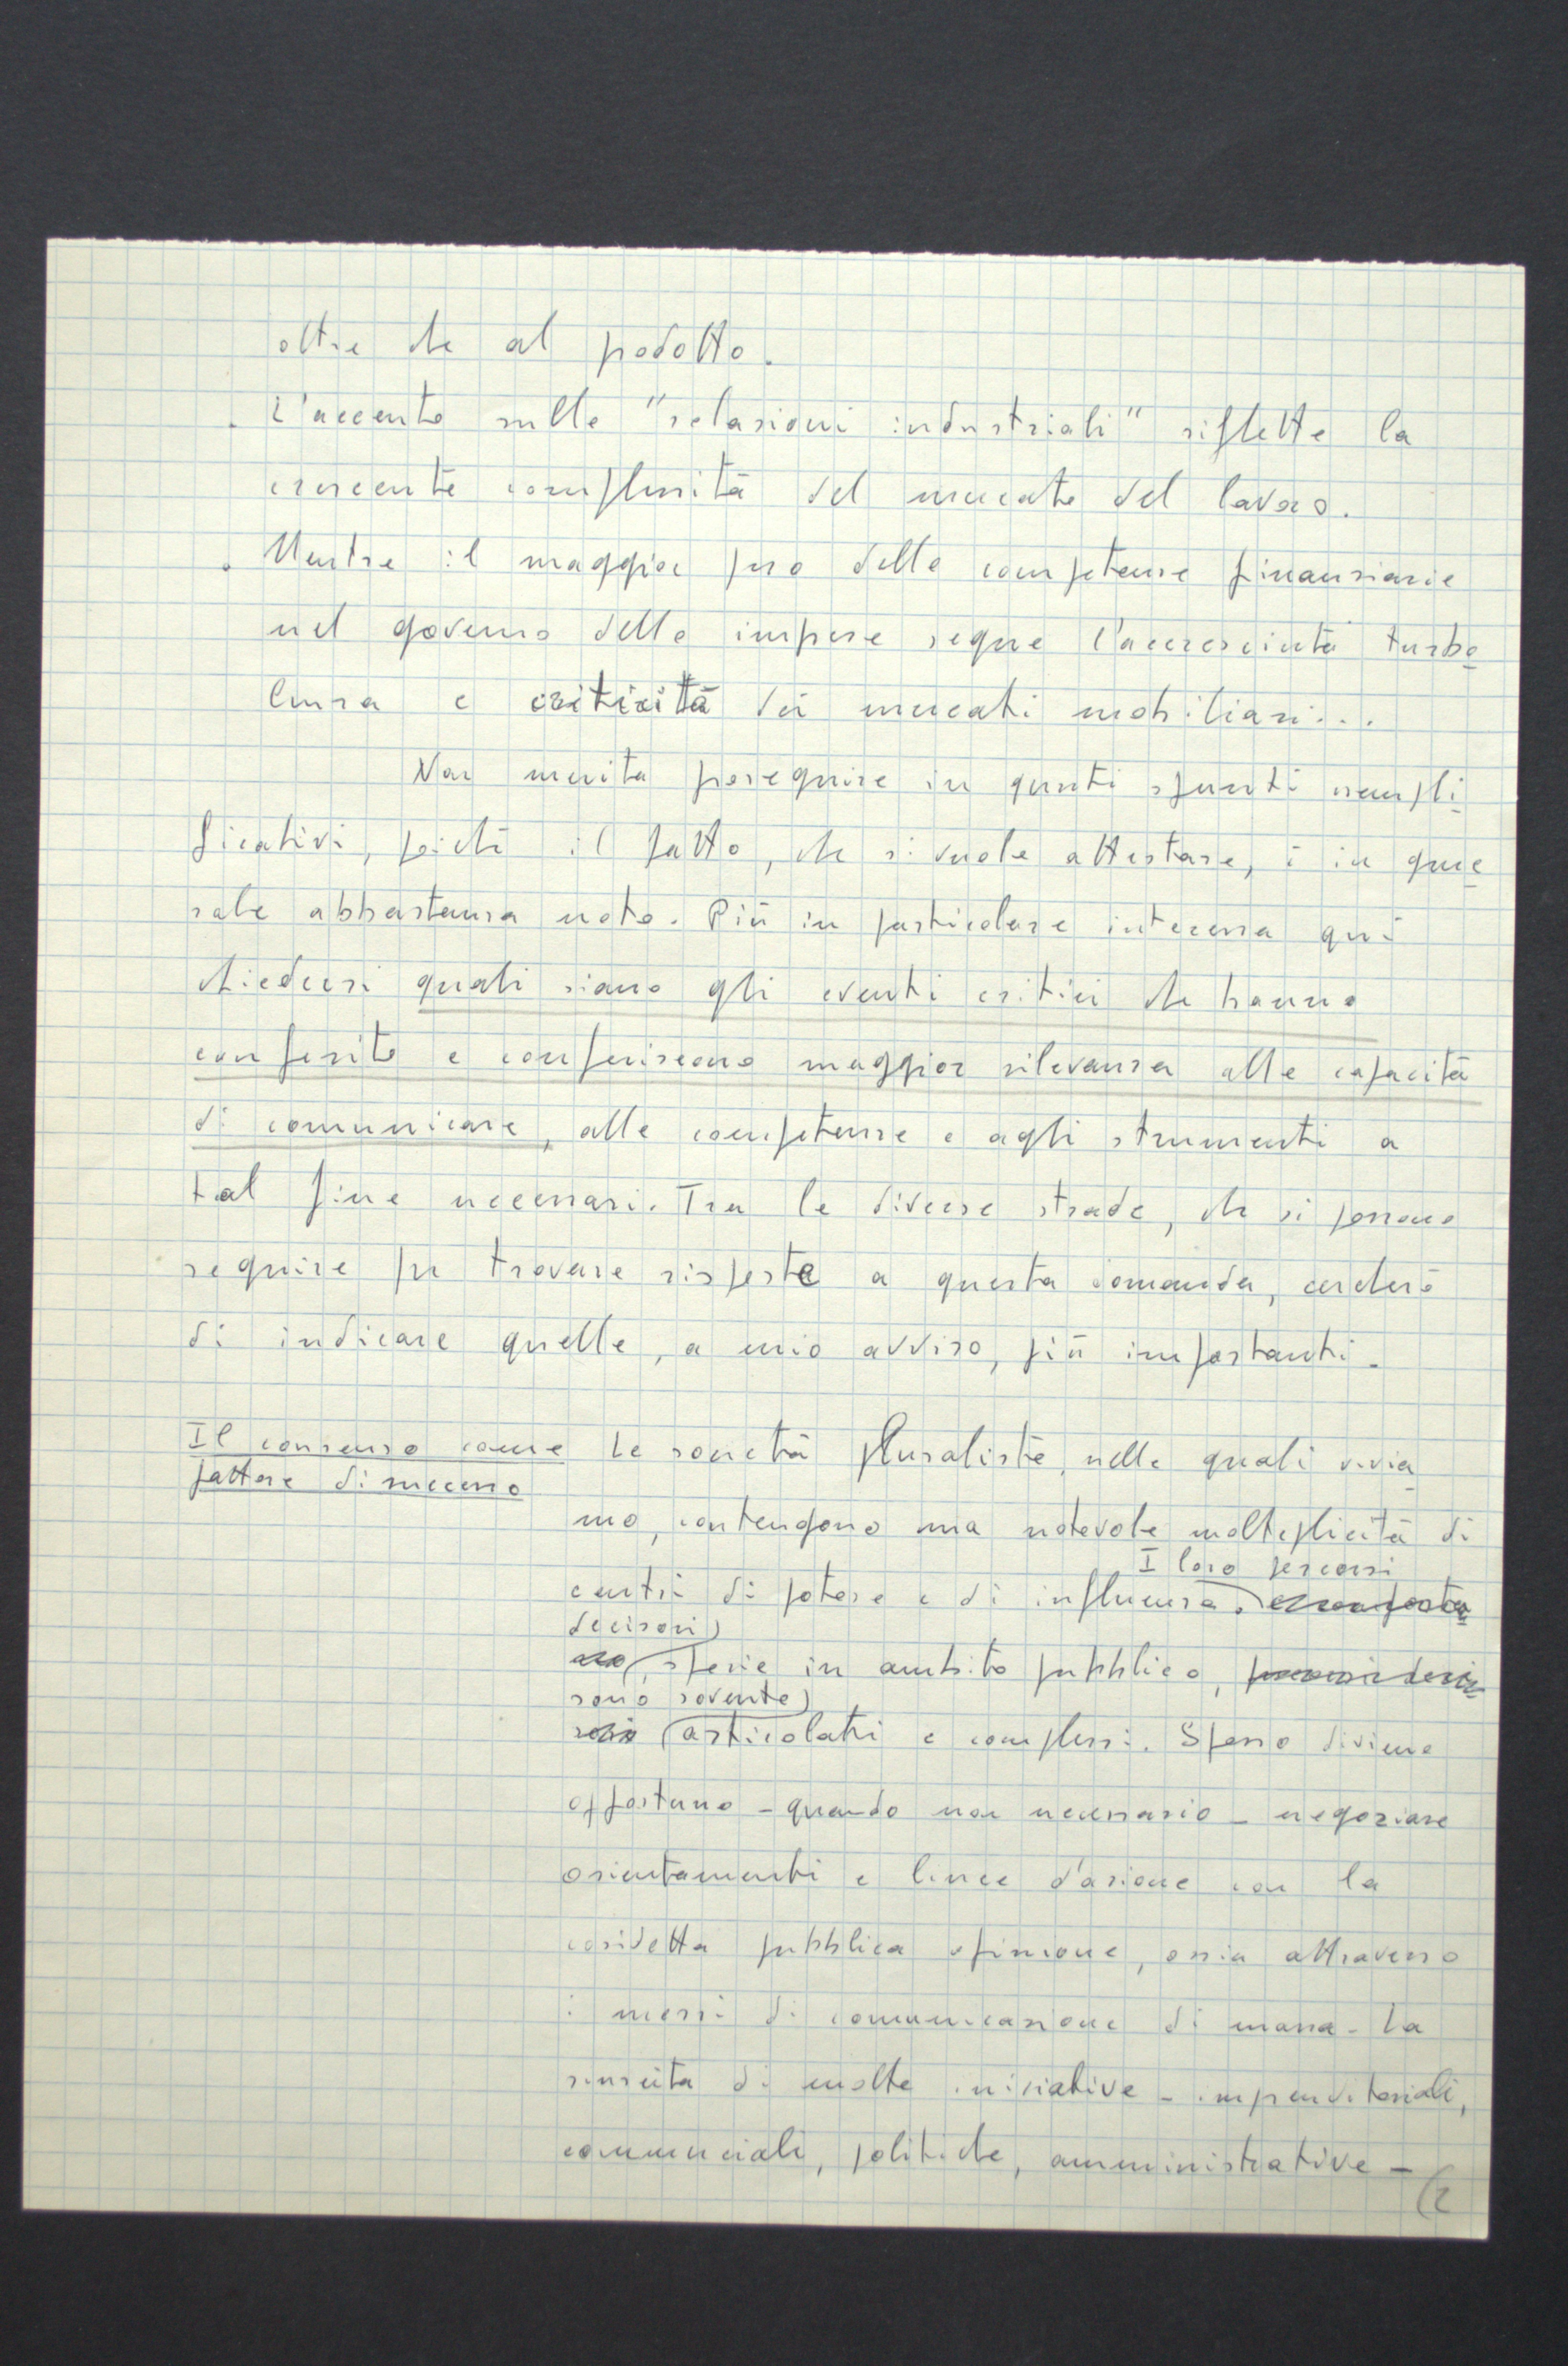 oltre che al prodotto.
. L'accento sulle "relazioni industriali" riflette la
crescente complessità del mercato del lavoro.
. Mentre il maggior peso delle competenze finanziarie
nel governo delle imprese segue l'accresciuta turbo
lenza e criticità dei mercati mobiliari...
Non merita proseguire in questi spunti esempli
ficativi, poiché il fatto, che si vuole attestare, è in gene
rale abbastanza noto. Più in particolare interessa qui
chiedersi quali siano gli eventi critici che hanno
conferito e conferiscono maggior rilevanza alle capacità
di comunicare, alle competenze e agli strumenti a
tal fine necessari. Tra le diverse strade, che si possono
seguire per trovare risposte a questa domanda, cercherò
di indicare quelle, a mio avviso, più importanti.
Il consenso come
fattore di successo
Le società pluraliste, nelle quali vivia
mo, contengono una notevole molteplicità di
I loro percorsi
centri di potere e di influenza.
decisori
, specie in ambito pubblico,
sono sovente
articolati e complessi. Spesso diviene
opportuno - quando non necessario - negoziare
orientamenti e linee d'azione con la
cosidetta pubblica opinione, ossia attraverso
i mezzi di comunicazione di massa. La
riuscita di molte iniziative - imprenditoriali,
commerciali, politiche, amministrative -
(2